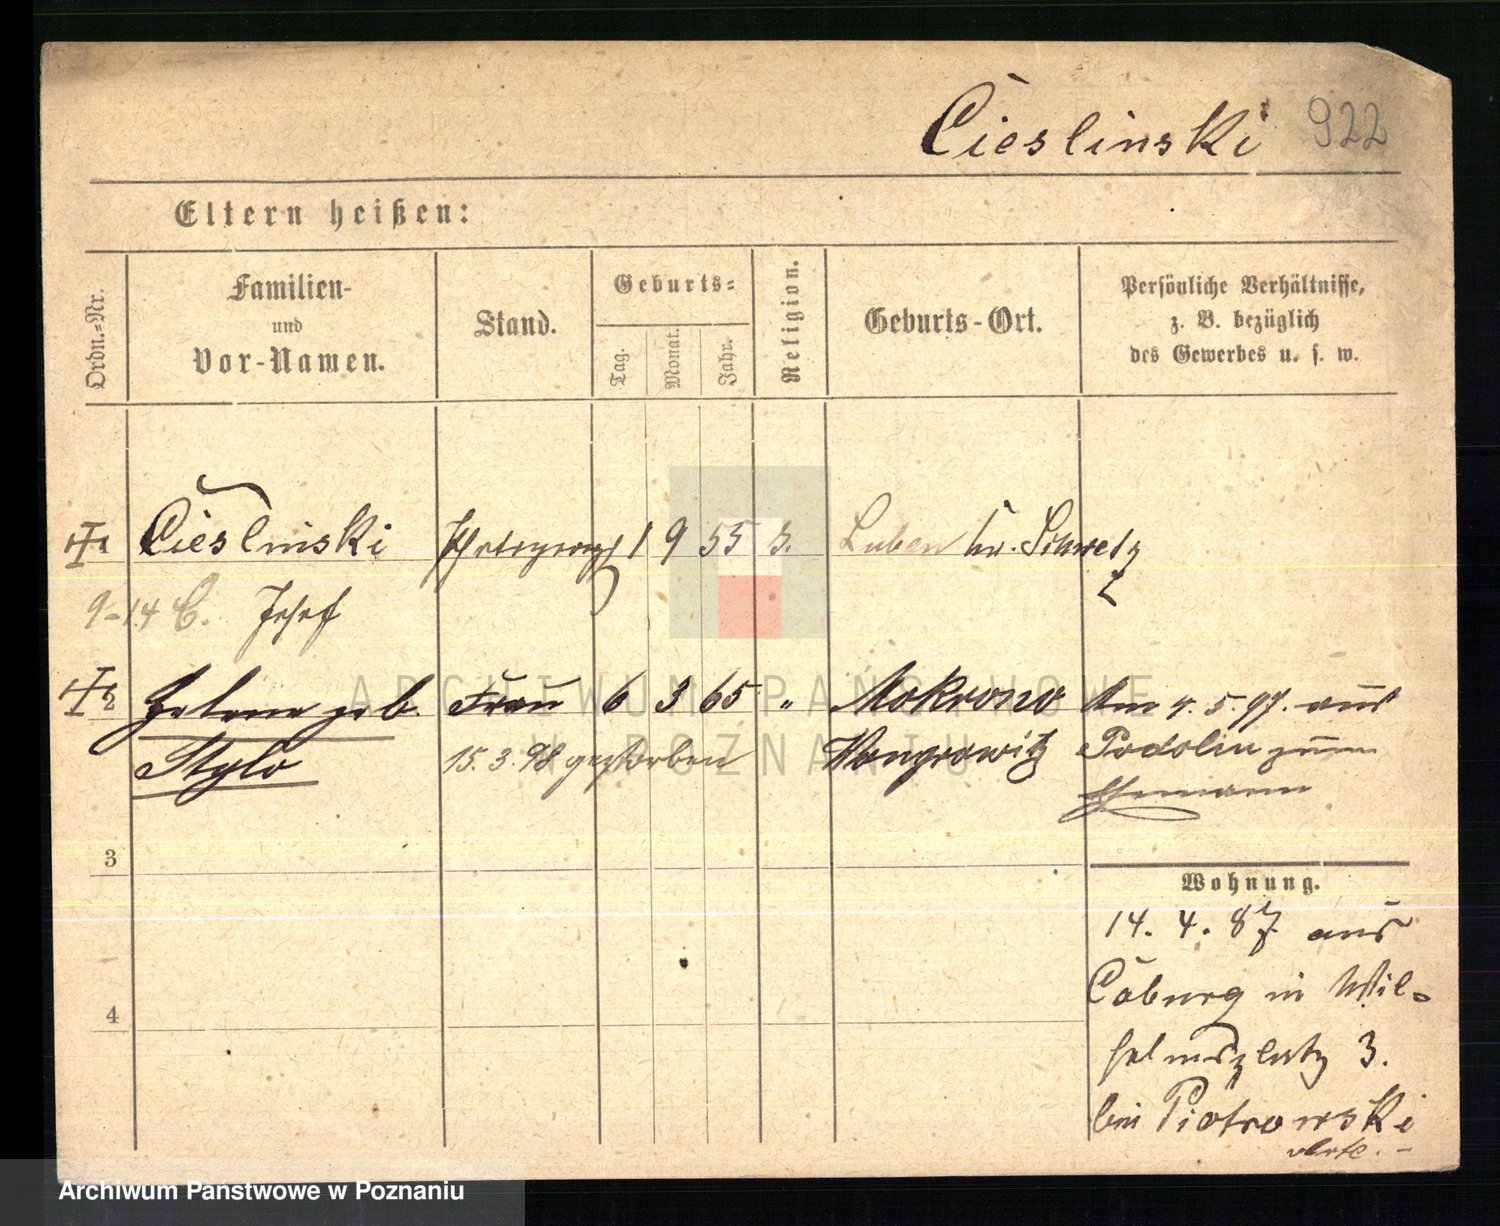 Cieslinski 922
Eltern heißen:
Ordn.=Nr.
Familien- und Vor-Namen.
Stand.
Geburts=
Tag.
Monat.
Jahr.
Religion.
Geburts-Ort.
Persönliche Verhältnisse,
z. B. bezüglich
des Gewerbes u. s. w.
1 Cieslinski 1 9 55 Luben Kr. Schwetz
9-14 C. Josef
2 Helene geb. Frau 6 3 65 " Mokrono Am 4. 5. 97. aus
Stylo 15. 3. 98 gestorben Wongrowitz Podolin zum
Ehemann
3
Wohnung.
14. 4. 87 aus
Coburg in Wil-
4
helmsplatz 3.
bei Piotrowski
ARCHIWUM PAŃSTWOWE
W POZNANIU
Archiwum Państwowe w Poznaniu